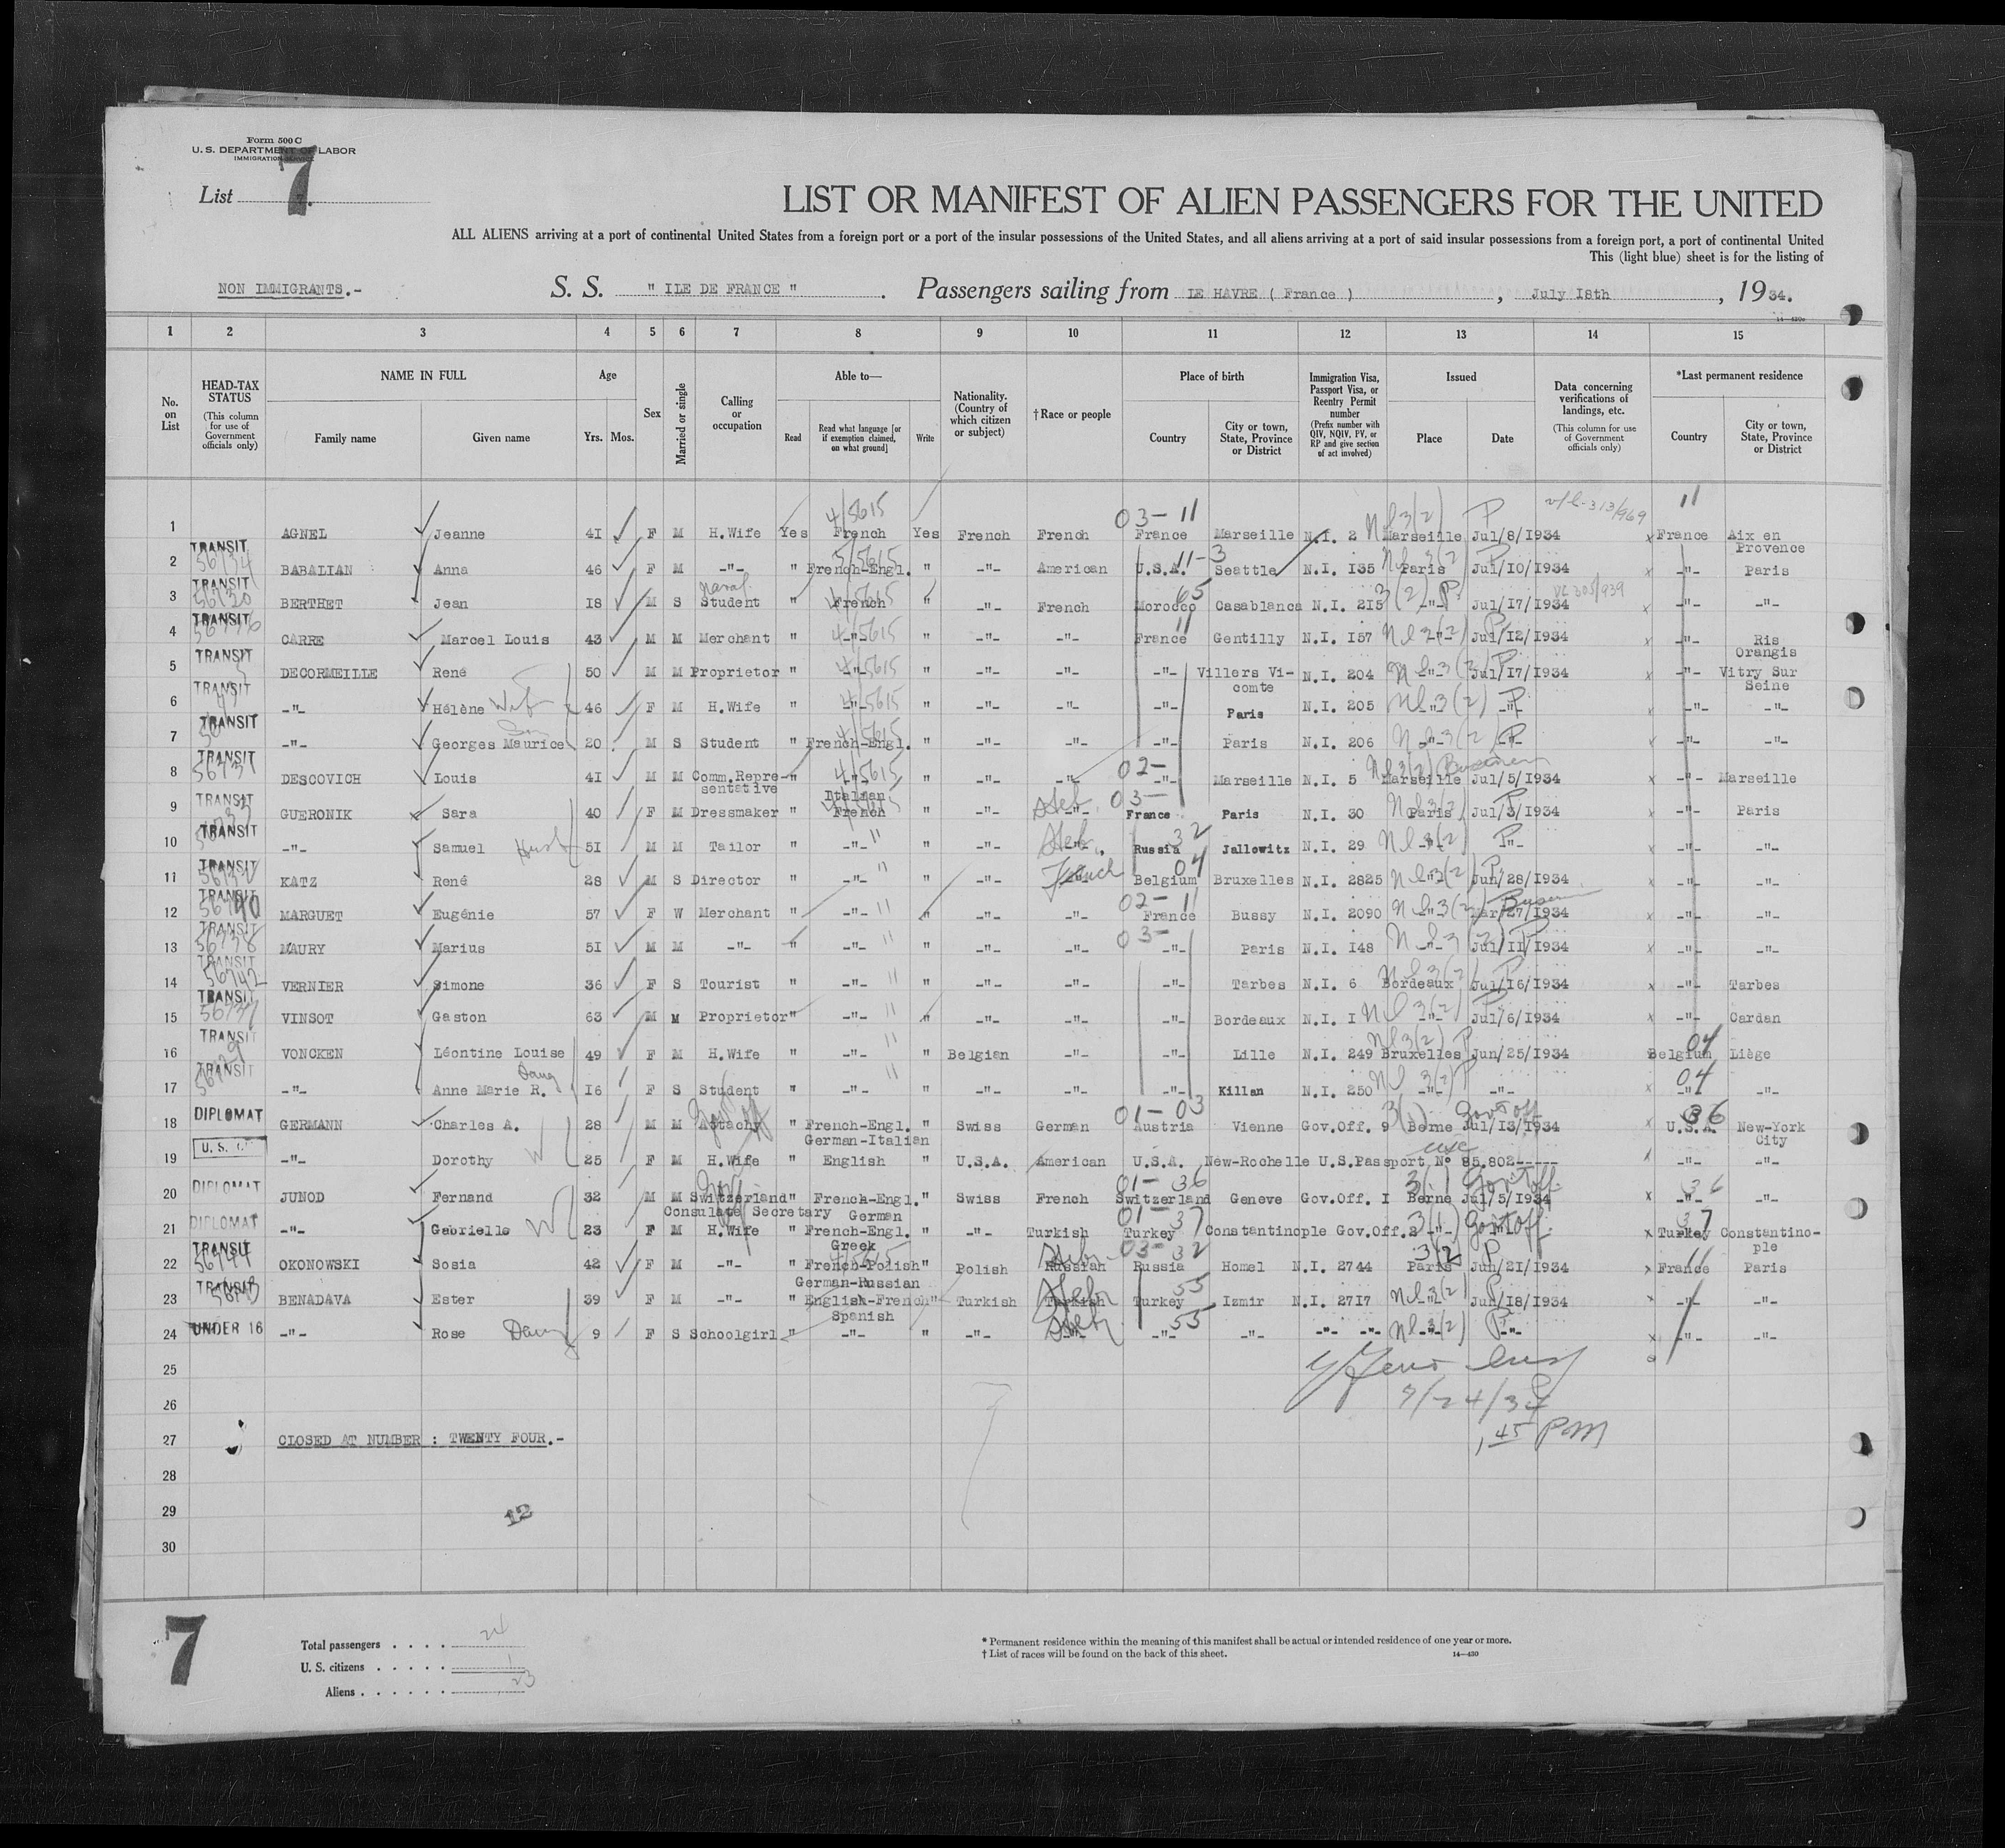 Form 500 C
U. S. DEPARTMENT OF LABOR
IMMIGRATION SERVICE
List 7
LIST OR MANIFEST OF ALIEN PASSENGERS FOR THE UNITED
ALL ALIENS arriving at a port of continental United States from a foreign port or a port of the insular possessions of the United States, and all aliens arriving at a port of said insular possessions from a foreign port, a port of continental United
This (light blue) sheet is for the listing of
NON IMMIGRANTS.- S. S. " ILE DE FRANCE " . Passengers sailing from LE HAVRE ( France ) , July 18th , 1934.
1 2 3 4 5 6 7 8 9 10 11 12 13 14 15
No. on List
HEAD-TAX STATUS (This column for use of Government officials only)
NAME IN FULL Family name Given name
Age Yrs. Mos.
Sex
Married or single
Calling or occupation
Able to— Read Read what language [or if exemption claimed, on what ground] Write
Nationality. (Country of which citizen or subject)
†Race or people
Place of birth Country City or town, State, Province or District
Immigration Visa, Passport Visa, or Reentry Permit number (Prefix number with QIV, NQIV, PV, or RP and give section of act involved)
Issued Place Date
Data concerning verifications of landings, etc. (This column for use of Government officials only)
*Last permanent residence Country City or town, State, Province or District
1 AGNEL Jeanne 41 F M H.Wife Yes French Yes French French France Marseille N.I. 2 Marseille Jul/8/1934 France Aix en Provence
2 TRANSIT BABALIAN Anna 46 F M -"- " French-Engl. " -"- American U.S.A. Seattle N.I. 135 Paris Jul/10/1934 -"- Paris
3 TRANSIT BERTHET Jean 18 M S Naval Student " French " -"- French Morocco Casablanca N.I. 215 -"- Jul/17/1934 -"- -"-
4 TRANSIT CARRE Marcel Louis 43 M M Merchant " -"- " -"- -"- France Gentilly N.I. 157 -"- Jul/12/1934 -"- Ris Orangis
5 TRANSIT DECORMEILLE René 50 M M Proprietor " -"- " -"- -"- -"- Villers Vicomte N.I. 204 -"- Jul/17/1934 -"- Vitry Sur Seine
6 TRANSIT -"- Hélène Wife 46 F M H.Wife " -"- " -"- -"- -"- Paris N.I. 205 -"- -"- -"- -"-
7 TRANSIT -"- Georges Maurice Son 20 M S Student " French-Engl. " -"- -"- -"- Paris N.I. 206 -"- -"- -"- -"-
8 TRANSIT DESCOVICH Louis 41 M M Comm.Representative " -"- Italian " -"- -"- -"- Marseille N.I. 5 Marseille Jul/5/1934 -"- Marseille
9 TRANSIT GUERONIK Sara 40 F M Dressmaker " French " -"- -"- Heb. France Paris N.I. 30 Paris Jul/3/1934 -"- Paris
10 TRANSIT -"- Samuel Husb 51 M M Tailor " -"- " -"- -"- Heb. Russia Jallowitz N.I. 29 -"- -"- -"- -"-
11 TRANSIT KATZ René 28 M S Director " -"- " -"- -"- French Belgium Bruxelles N.I. 2825 -"- Jun/28/1934 -"- -"-
12 TRANSIT MARGUET Eugénie 57 F W Merchant " -"- " -"- -"- France Bussy N.I. 2090 -"- Mar/27/1934 -"- -"-
13 TRANSIT MAURY Marius 51 M M -"- " -"- " -"- -"- -"- Paris N.I. 148 -"- Jul/11/1934 -"- -"-
14 TRANSIT VERNIER Simone 36 F S Tourist " -"- " -"- -"- -"- Tarbes N.I. 6 Bordeaux Jul/16/1934 -"- Tarbes
15 TRANSIT VINSOT Gaston 63 M M Proprietor " -"- " -"- -"- -"- Bordeaux N.I. 1 -"- Jul/6/1934 -"- Cardan
16 TRANSIT VONCKEN Léontine Louise 49 F M H.Wife " -"- " Belgian -"- -"- Lille N.I. 249 Bruxelles Jun/25/1934 Belgium Liège
17 TRANSIT -"- Anne Marie R. Daug 16 F S Student " -"- " -"- -"- -"- Killan N.I. 250 -"- -"- -"- -"-
18 DIPLOMAT GERMANN Charles A. 28 M M Attachy " French-Engl. German-Italian " Swiss German Austria Vienne Gov.Off. 9 Berne Jul/13/1934 U.S.A. New-York City
19 U. S. C -"- Dorothy W 25 F M H.Wife " English " U.S.A. American U.S.A. New-Rochelle U.S.Passport N° 85.802----- -"- -"-
20 DIPLOMAT JUNOD Fernand 32 M M Switzerland Consulate Secretary " French-Engl. German " Swiss French Switzerland Geneve Gov.Off. 1 Berne Jul/5/1934 -"- -"-
21 DIPLOMAT -"- Gabrielle W 23 F M H.Wife " French-Engl. Greek " -"- Turkish Turkey Constantinople Gov.Off.2 -"- -"- Turkey Constantinople
22 TRANSIT OKONOWSKI Sosia 42 F M -"- " French-Polish German-Russian " Polish Russian Hebr Russia Homel N.I. 2744 Paris Jun/21/1934 France Paris
23 TRANSIT BENADAVA Ester 39 F M -"- " English-French Spanish " Turkish Turkish Hebr Turkey Izmir N.I. 2717 -"- Jun/18/1934 -"- -"-
24 UNDER 16 -"- Rose Daug 9 F S Schoolgirl " -"- " -"- -"- Hebr -"- -"- -"- -"- -"- -"- -"- -"-
25
26 7/24/34
27 CLOSED AT NUMBER : TWENTY FOUR.- 1.45 PM
28
29 12
30
7
Total passengers . . . . 24
U. S. citizens . . . . . 1
Aliens . . . . . . 23
* Permanent residence within the meaning of this manifest shall be actual or intended residence of one year or more.
† List of races will be found on the back of this sheet. 14—430